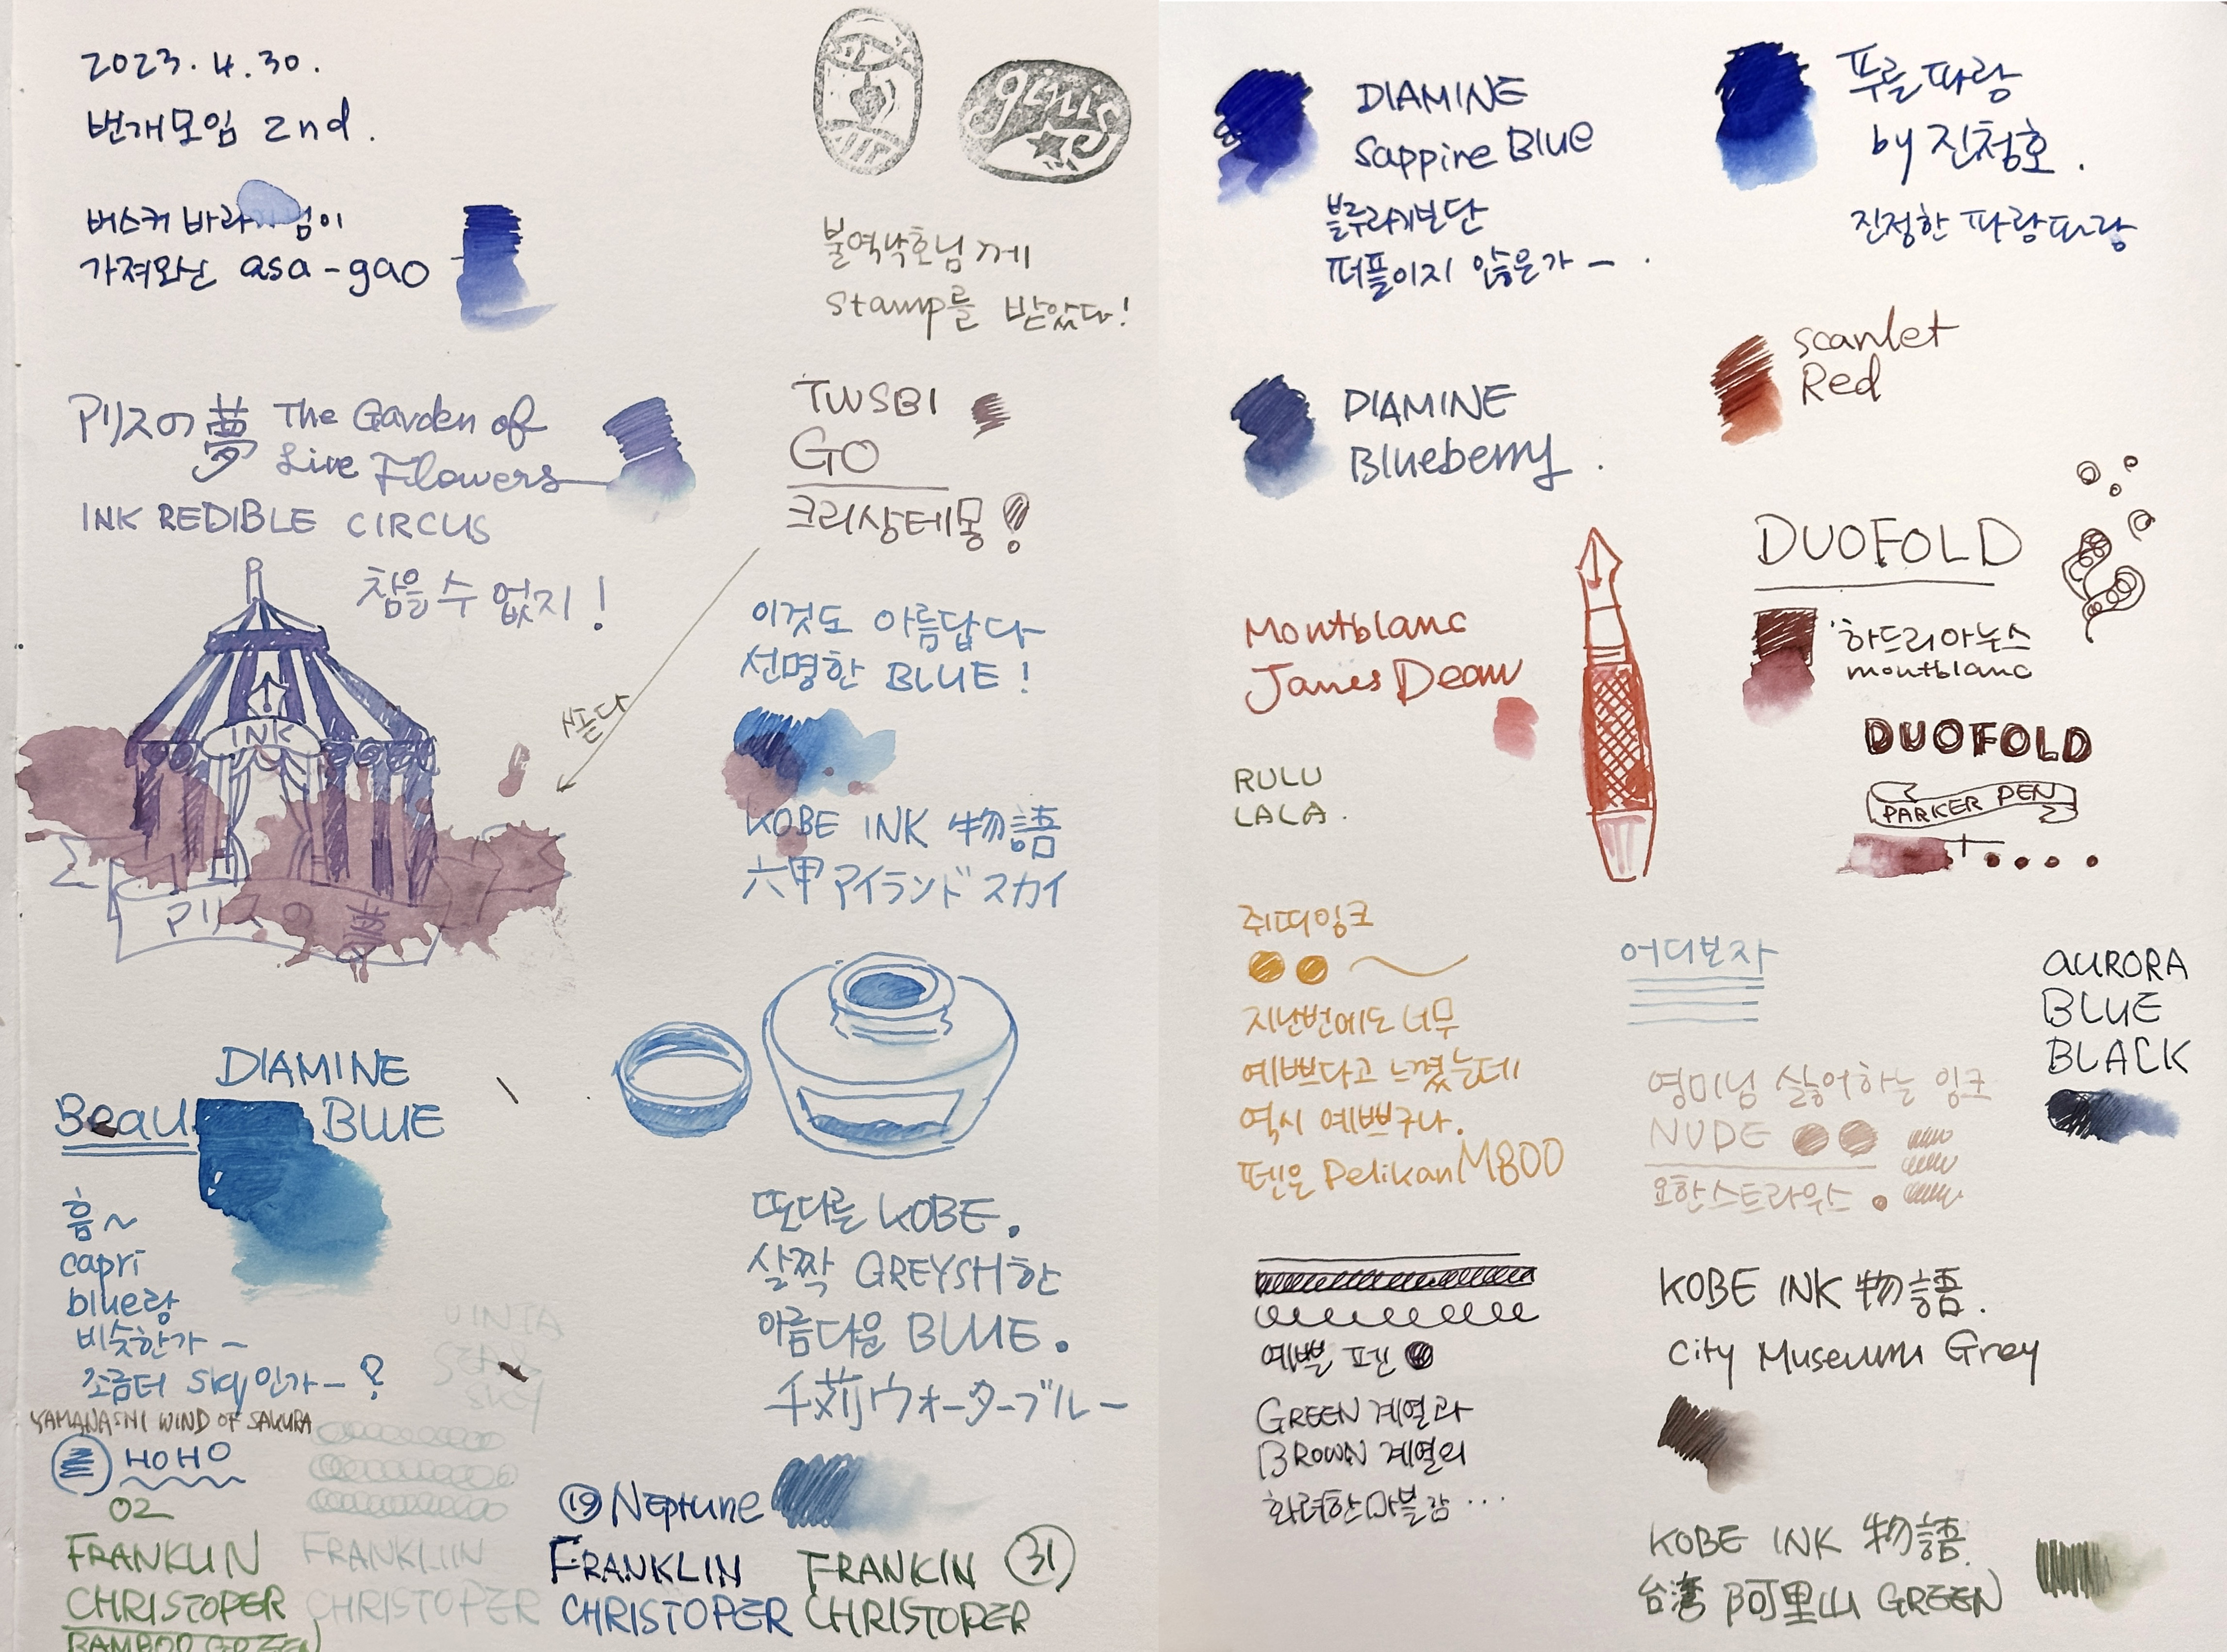 2023.4.30.
번개모임 2nd.
버스커 바라 님이
가져와신 asa-gao
ginis
불역낙호님께
stamp를 받았다!
アリスの夢 The Garden of
Live Flowers
INK REDIBLE CIRCUS
참을수 없지!
INK
アリスの夢
TWSBI
GO
크리상테몽!
쏟다
이것도 아름답다
선명한 BLUE!
KOBE INK 物語
六甲アイランドスカイ
DIAMINE
Beau BLUE
흠~
capri
blue랑
비슷한가 –
조금더 sky인가–?
YAMANASHI WIND OF SAKURA
HOHO
02
FRANKLIN
CHRISTOPER
BAMBOO GREEN
VINTA
SEA
SKY
FRANKLIIN
CHRISTOPER
또다른 KOBE.
살짝 GREYSH한
아름다운 BLUE.
千苅ウォーターブルー
⑲ Neptune
FRANKLIN
CHRISTOPER
FRANKIN ㉛
CHRISTOPER
DIAMINE
Sappine Blue
블루라기보단
퍼플이지 않은가 – .
푸를파랑
by 진청호.
진정한 파랑파랑
DIAMINE
Blueberry.
scarlet
Red
Montblanc
James Dean
RULU
LALA.
DUOFOLD
하드리아누스
montblanc
DUOFOLD
PARKER PEN
쥐띠잉크
지난번에도 너무
예쁘다고 느꼈는데
역시 예쁘구나.
펜은 Pelikan M800
어디보자
AURORA
BLUE
BLACK
영미님 싫어하는 잉크
NUDE
요한스트라우스
예쁠 펜
GREEN 계열과
BROWN 계열의
화려한 마블람 ...
KOBE INK 物語.
City Museum Grey
KOBE INK 物語.
台湾 阿里山 GREEN